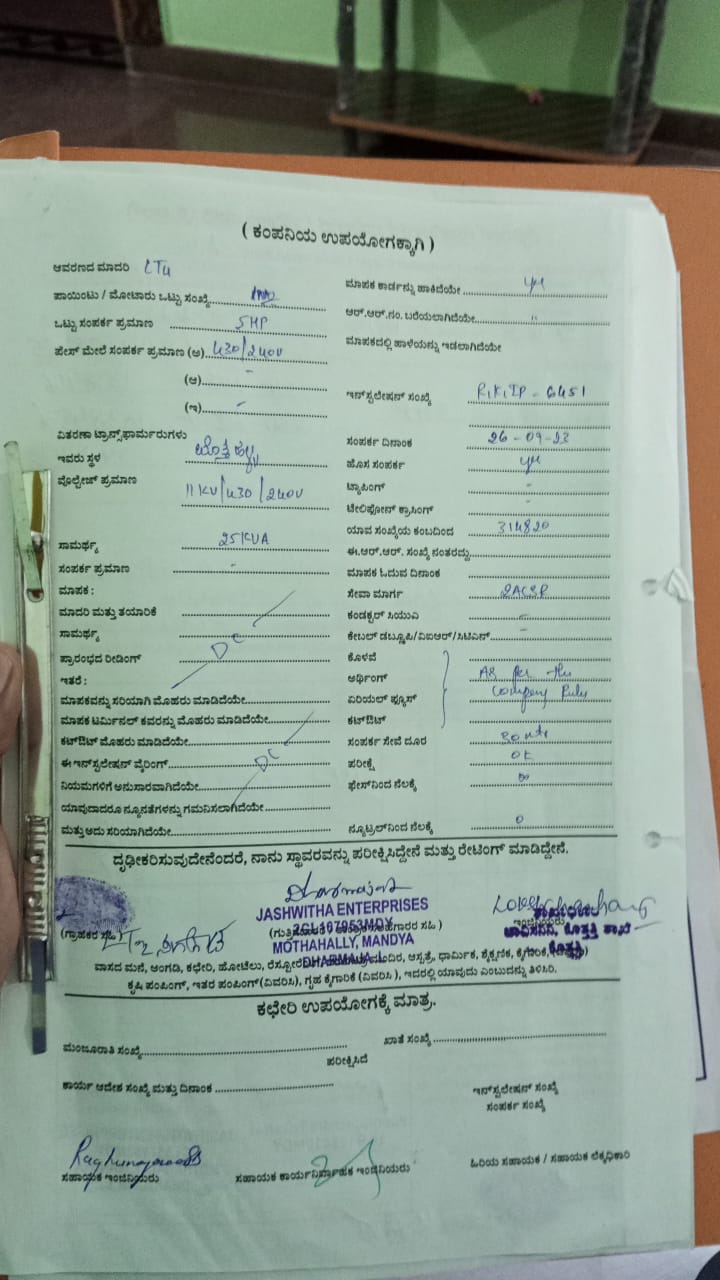 ( ಕಂಪನಿಯ ಉಪಯೋಗಕ್ಕಾಗಿ )
ಆವರಣದ ಮಾದರಿ LT4
ಮಾಪಕ ಕಾರ್ಡನ್ನು ಹಾಕಿದೆಯೇ
ಪಾಯಿಂಟು / ಮೋಟಾರು ಒಟ್ಟು ಸಂಖ್ಯೆ
ಆರ್.ಆರ್.ನಂ. ಬರೆಯಲಾಗಿದೆಯೇ "
ಒಟ್ಟು ಸಂಪರ್ಕ ಪ್ರಮಾಣ 5HP
ಮಾಪಕದಲ್ಲಿ ಹಾಳೆಯನ್ನು ಇಡಲಾಗಿದೆಯೇ
ಪೇಸ್ ಮೇಲೆ ಸಂಪರ್ಕ ಪ್ರಮಾಣ (ಅ) 430/240V
(ಆ) -
ಇನ್‌ಸ್ಟಲೇಷನ್ ಸಂಖ್ಯೆ R.K.IP - 6451
(ಇ) -
ವಿತರಣಾ ಟ್ರಾನ್ಸ್‌ಫಾರ್ಮರುಗಳು
ಸಂಪರ್ಕ ದಿನಾಂಕ 26-09-23
ಇವರು ಸ್ಥಳ
ಹೊಸ ಸಂಪರ್ಕ
ವೊಲ್ಟೇಜ್ ಪ್ರಮಾಣ 11KV/430/240V
ಟ್ಯಾಪಿಂಗ್ -
ಟೇಲಿಫೋನ್ ಕ್ರಾಸಿಂಗ್ -
ಯಾವ ಸಂಖ್ಯೆಯ ಕಂಬದಿಂದ 314820
ಸಾಮರ್ಥ್ಯ 25KVA
ಈ.ಆರ್.ಆರ್. ಸಂಖ್ಯೆ ನಂತರದ್ದು
ಸಂಪರ್ಕ ಪ್ರಮಾಣ -
ಮಾಪಕ ಓದುವ ದಿನಾಂಕ
ಮಾಪಕ :
ಸೇವಾ ಮಾರ್ಗ 2ACSR
ಮಾದರಿ ಮತ್ತು ತಯಾರಿಕೆ
ಕಂಡಕ್ಟರ್ ಸಿಯುಎ -
ಸಾಮರ್ಥ್ಯ DC
ಕೇಬಲ್ ಡಬ್ಲ್ಯೂಪಿ/ವಿಐಆರ್/ಸಿಟಿಎಸ್ -
ಪ್ರಾರಂಭದ ರೀಡಿಂಗ್
ಕೊಳವೆ
ಇತರೆ :
ಅರ್ಥಿಂಗ್ As per the
ಮಾಪಕವನ್ನು ಸರಿಯಾಗಿ ಮೊಹರು ಮಾಡಿದೆಯೇ
ಏರಿಯಲ್ ಫ್ಯೂಸ್ Company Rules
ಮಾಪಕ ಟರ್ಮಿನಲ್ ಕವರನ್ನು ಮೊಹರು ಮಾಡಿದೆಯೇ
ಕಟ್‌ಔಟ್
ಕಟ್‌ಔಟ್ ಮೊಹರು ಮಾಡಿದೆಯೇ
ಸಂಪರ್ಕ ಸೇವೆ ದೂರ 30 mts
ಈ ಇನ್‌ಸ್ಟಲೇಷನ್ ವೈರಿಂಗ್ DC
ಪರೀಕ್ಷೆ OK
ನಿಯಮಗಳಿಗೆ ಅನುಸಾರವಾಗಿದೆಯೇ
ಫೇಸ್‌ನಿಂದ ನೆಲಕ್ಕೆ
ಯಾವುದಾದರೂ ನ್ಯೂನತೆಗಳನ್ನು ಗಮನಿಸಲಾಗಿದೆಯೇ
ಮತ್ತು ಅದು ಸರಿಯಾಗಿದೆಯೇ
ನ್ಯೂಟ್ರಲ್‌ನಿಂದ ನೆಲಕ್ಕೆ 0
ದೃಢೀಕರಿಸುವುದೇನೆಂದರೆ, ನಾನು ಸ್ಥಾವರವನ್ನು ಪರೀಕ್ಷಿಸಿದ್ದೇನೆ ಮತ್ತು ರೇಟಿಂಗ್ ಮಾಡಿದ್ದೇನೆ.
JASHWITHA ENTERPRISES
(ಗ್ರಾಹಕರ ಸಹಿ)
ಇಂಜಿನಿಯರು
MOTHAHALLY, MANDYA
DHARMARAJA
ವಾಸದ ಮನೆ, ಅಂಗಡಿ, ಕಛೇರಿ, ಹೋಟೆಲು, ಆಸ್ಪತ್ರೆ, ಧಾರ್ಮಿಕ, ಶೈಕ್ಷಣಿಕ, ಕೈಗಾರಿಕೆ,
ಕೃಷಿ ಪಂಪಿಂಗ್, ಇತರ ಪಂಪಿಂಗ್ (ವಿವರಿಸಿ), ಗೃಹ ಕೈಗಾರಿಕೆ (ವಿವರಿಸಿ ), ಇದರಲ್ಲಿ ಯಾವುದು ಎಂಬುದನ್ನು ತಿಳಿಸಿರಿ.
ಕಛೇರಿ ಉಪಯೋಗಕ್ಕೆ ಮಾತ್ರ.
ಮಂಜೂರಾತಿ ಸಂಖ್ಯೆ
ಖಾತೆ ಸಂಖ್ಯೆ
ಪರೀಕ್ಷಿಸಿದೆ
ಕಾರ್ಯ ಆದೇಶ ಸಂಖ್ಯೆ ಮತ್ತು ದಿನಾಂಕ
ಇನ್‌ಸ್ಟಲೇಷನ್ ಸಂಖ್ಯೆ
ಸಂಪರ್ಕ ಸಂಖ್ಯೆ
ಸಹಾಯಕ ಇಂಜಿನಿಯರು
ಸಹಾಯಕ ಕಾರ್ಯನಿರ್ವಾಹಕ ಇಂಜಿನಿಯರು
ಹಿರಿಯ ಸಹಾಯಕ / ಸಹಾಯಕ ಲೆಕ್ಕಾಧಿಕಾರಿ